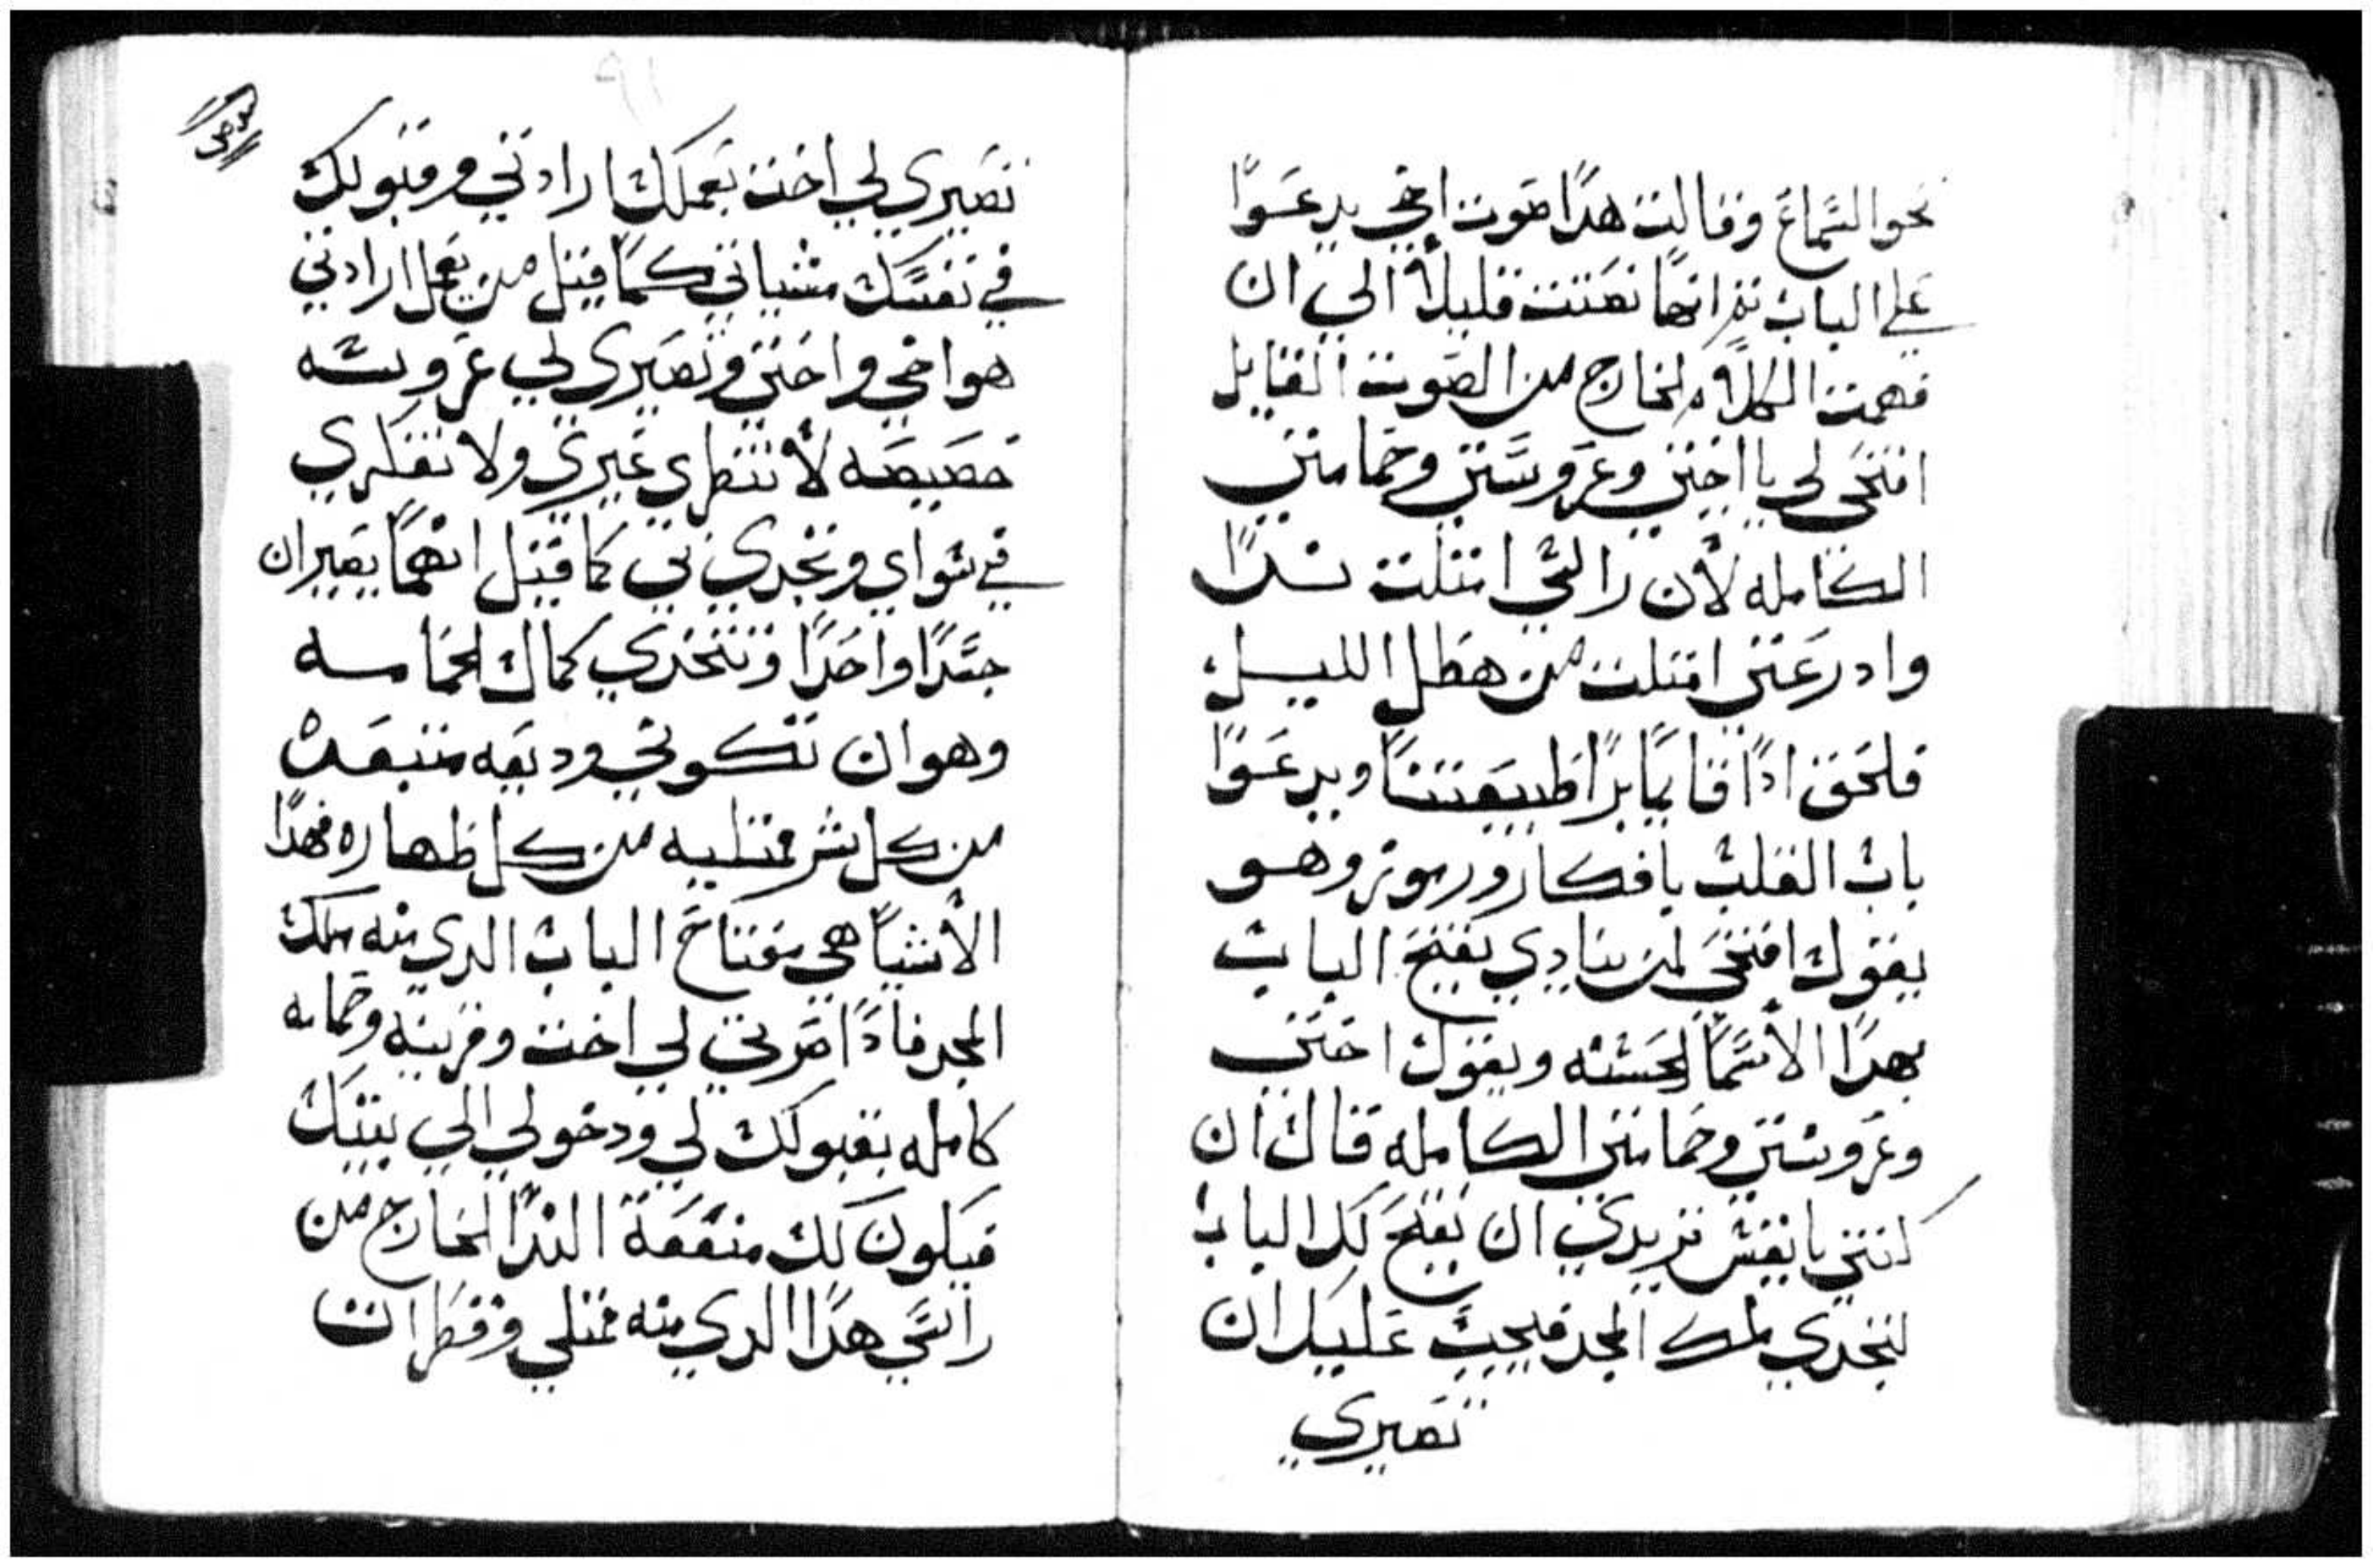 نحو السماع وقالت هدا صوت اخي يدعوا
علي الباب تم انها نصتت قليلا الي ان
فهمت الكلام الخارج من الصوت القايل
افتحي لي يا اختي وعروستي وحمامتي
الكامله لان راسي امتلت ندا
وادرعتي امتلت من هطل الليل
فلحق ادا قايما برا طبيعتنا ويدعوا
باب القلب بافكار ورموز وهو
يقول افتحي لمن ينادي يفتح الباب
بهدا الاسما الحسنه ويقول اختي
وعروستي وحمامتي الكامله قال ان
كنتي يا نفس تريدي ان يفتح لك الباب
لتجدي ملك المجد فيجب عليك ان
تصيري
تصيري لي اخت بعملك ارادتي وقبولك
في نفسك مشياتي كما قيل من يعمل ارادتي
هو اخي واختي وتصيري لي عروسه
خصيصه لا تنظري غيري ولا تفكري
في سواي وتتحدي بي كما قيل انهما يصيران
جسدا واحدا وتتخدي كمال الحمامه
وهو ان تكوني وديعه متبعده
من كل شر ممتليه من كل طهاره فهدا
الاشيا هي مفتاح الباب الدي منه ملك
المجد فادا صرتي لي اخت وقرينه وحمامه
كامله بقبولك لي ودخولي الي بيتك
فيكون لك منفعة الندا الخارج من
راسي هدا الدي منه ممتلي وقطرات